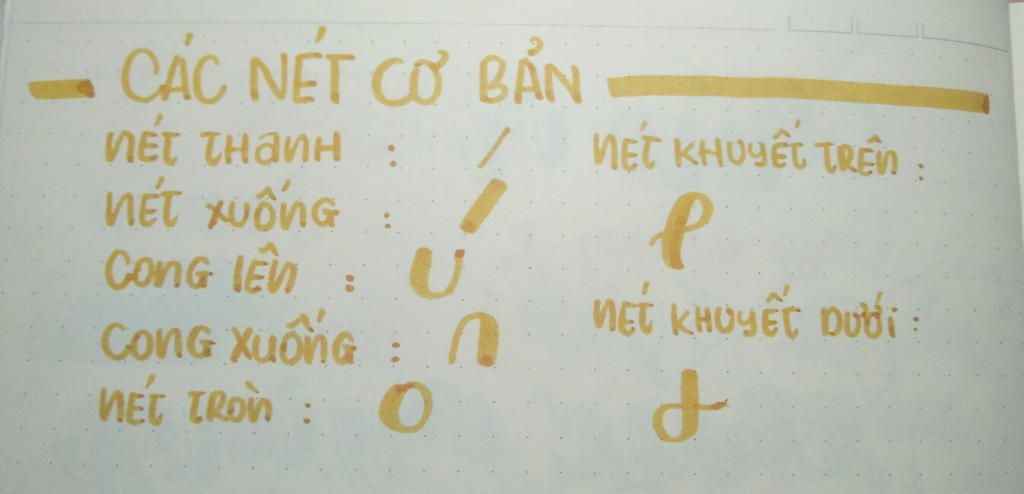 CÁC NÉT CƠ BẢN
NÉT THANH :
NÉT XUỐNG :
CONG LÊN :
CONG XUỐNG :
NÉT TRÒN :
NÉT KHUYẾT TRÊN :
NÉT KHUYẾT DƯỚI :